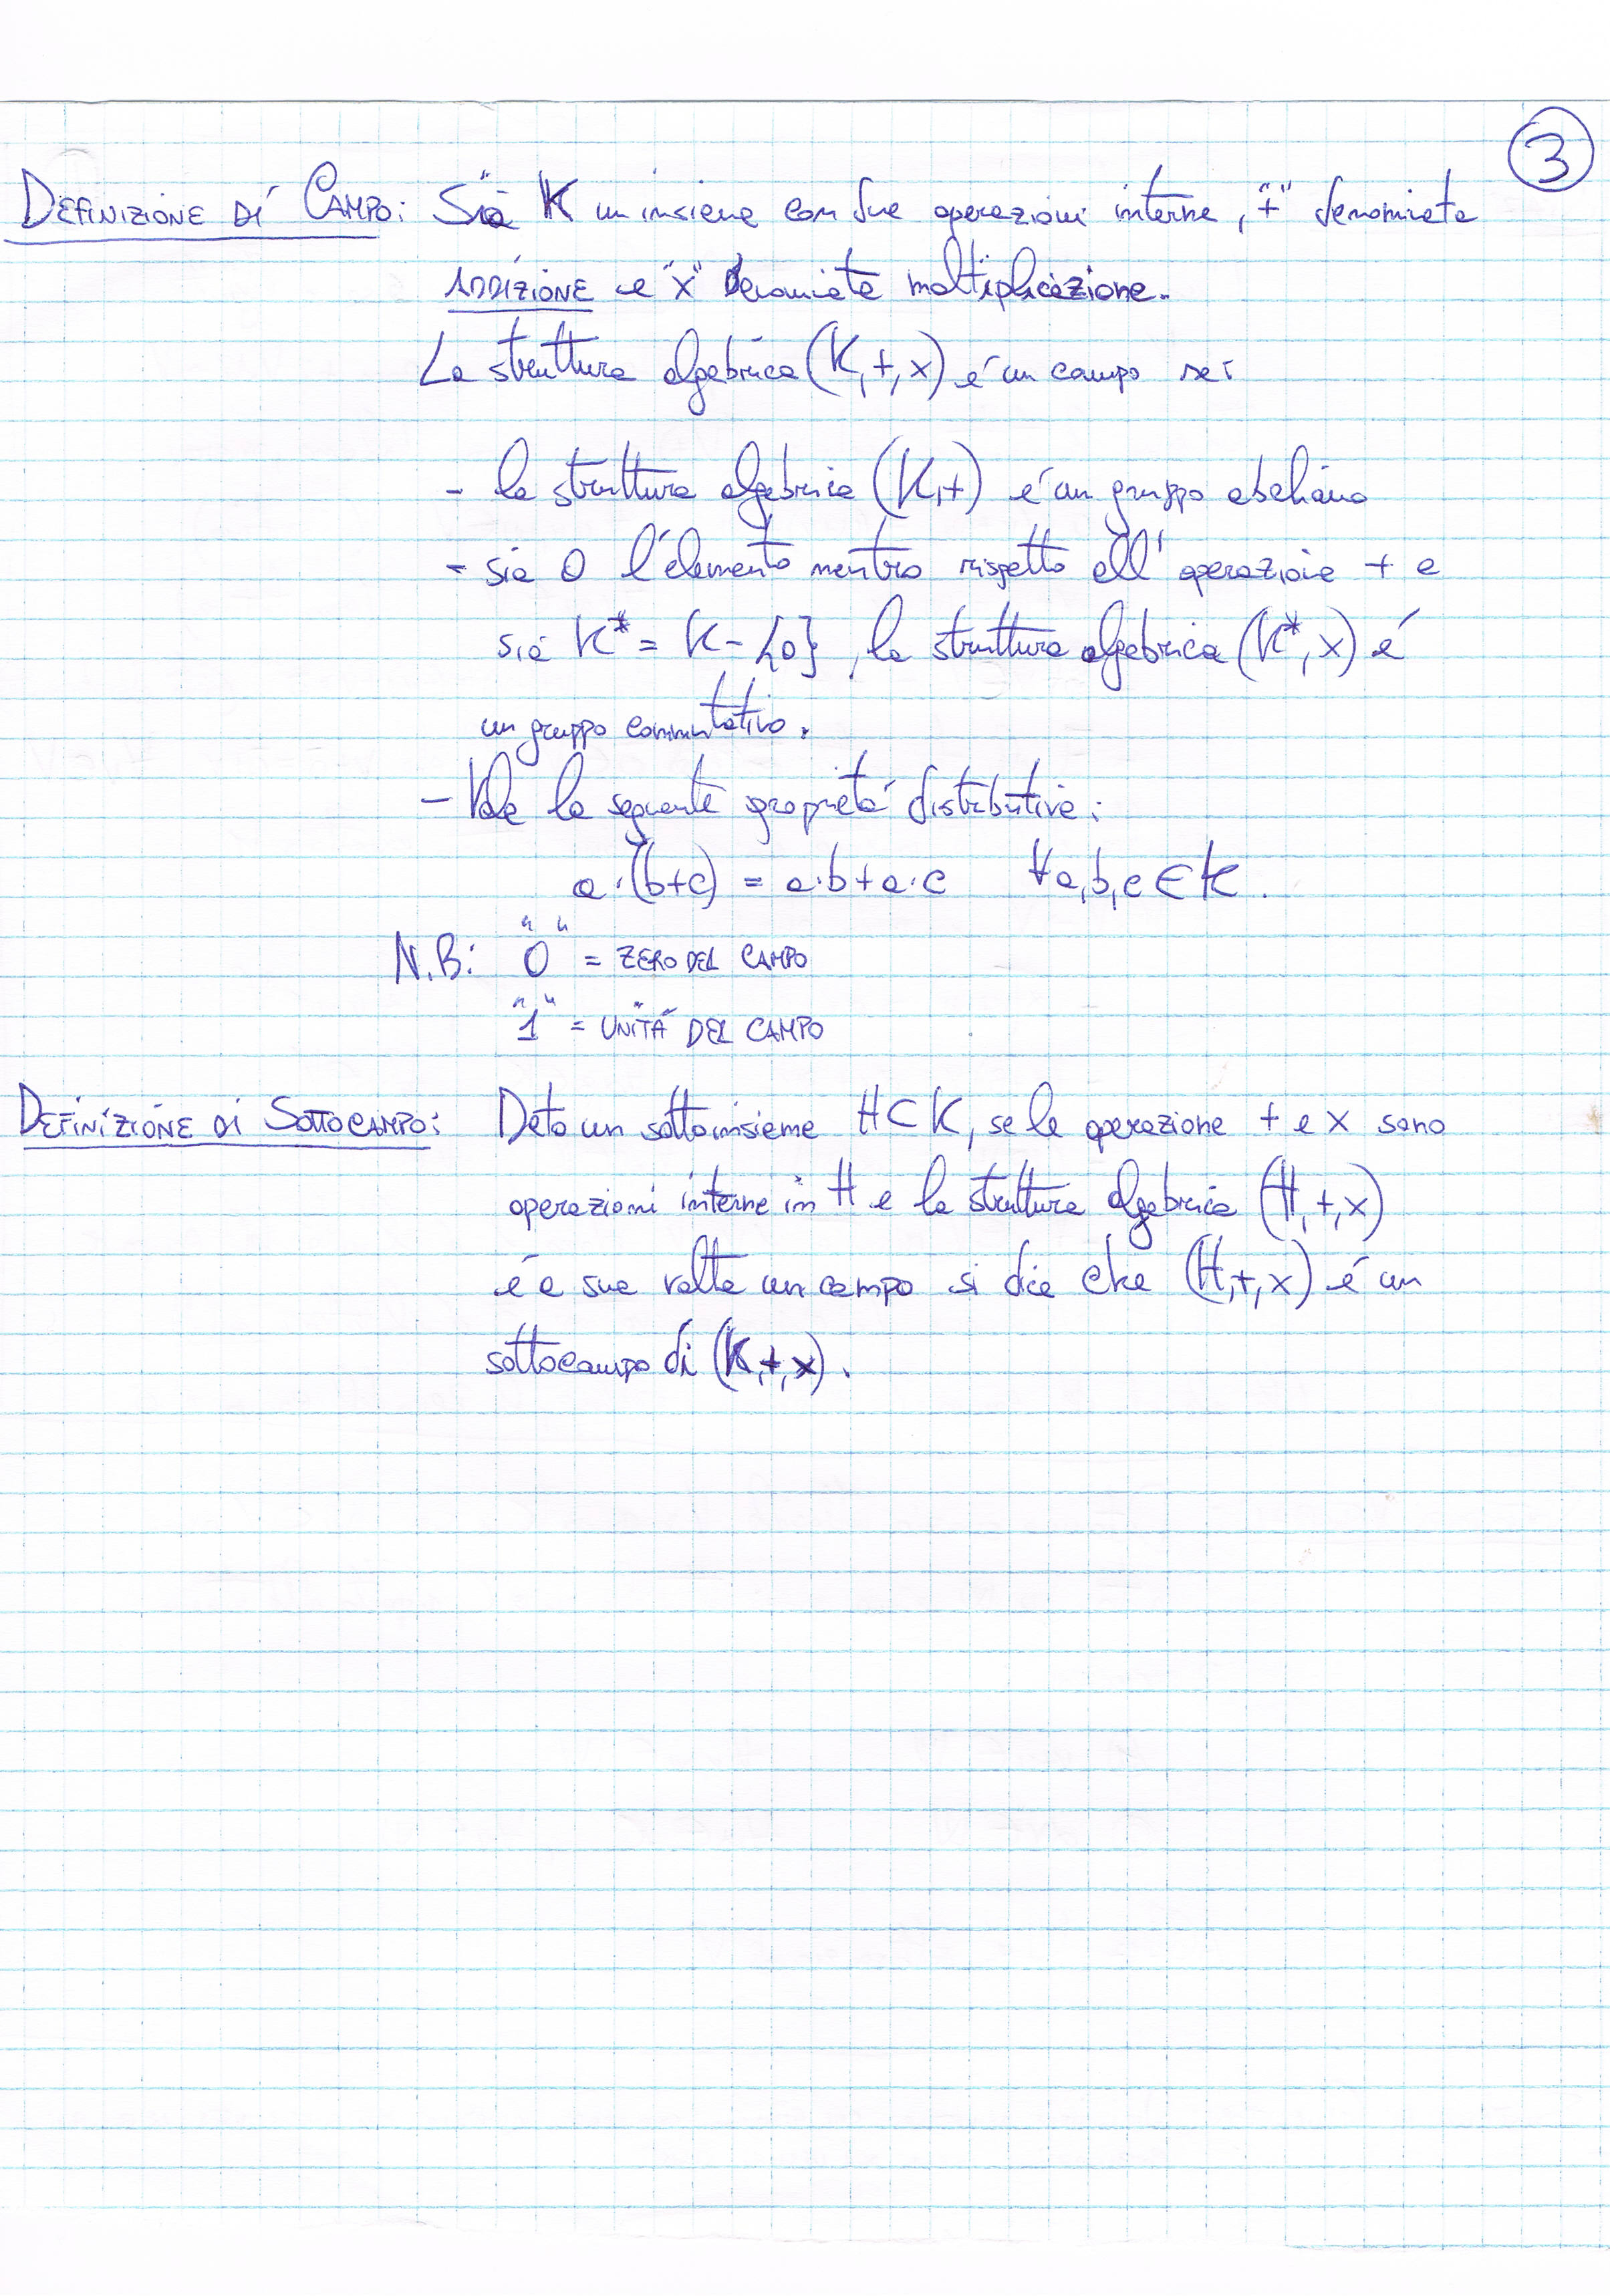 3
DEFINIZIONE DI CAMPO: Sia K un insieme con due operazioni interne, "+" denominata
ADDIZIONE e "x" denominata moltiplicazione.
La struttura algebrica (K,+,x) é un campo se:
- la struttura algebrica (K,+) é un gruppo abeliano
- sia 0 l'elemento neutro rispetto all'operazione + e
sia K* = K - {0}, la struttura algebrica (K*,x) é
un gruppo commutativo.
- Vale la seguente proprietá distributiva:
a·(b+c) = a·b+a·c ∀a,b,c ∈ K.
N.B: "0" = ZERO DEL CAMPO
"1" = UNITÁ DEL CAMPO
DEFINIZIONE DI SOTTOCAMPO: Dato un sottoinsieme H⊂K, se le operazione + e x sono
operazioni interne in H e la struttura algebrica (H,+,x)
é a sua volta un campo si dice che (H,+,x) é un
sottocampo di (K,+,x).